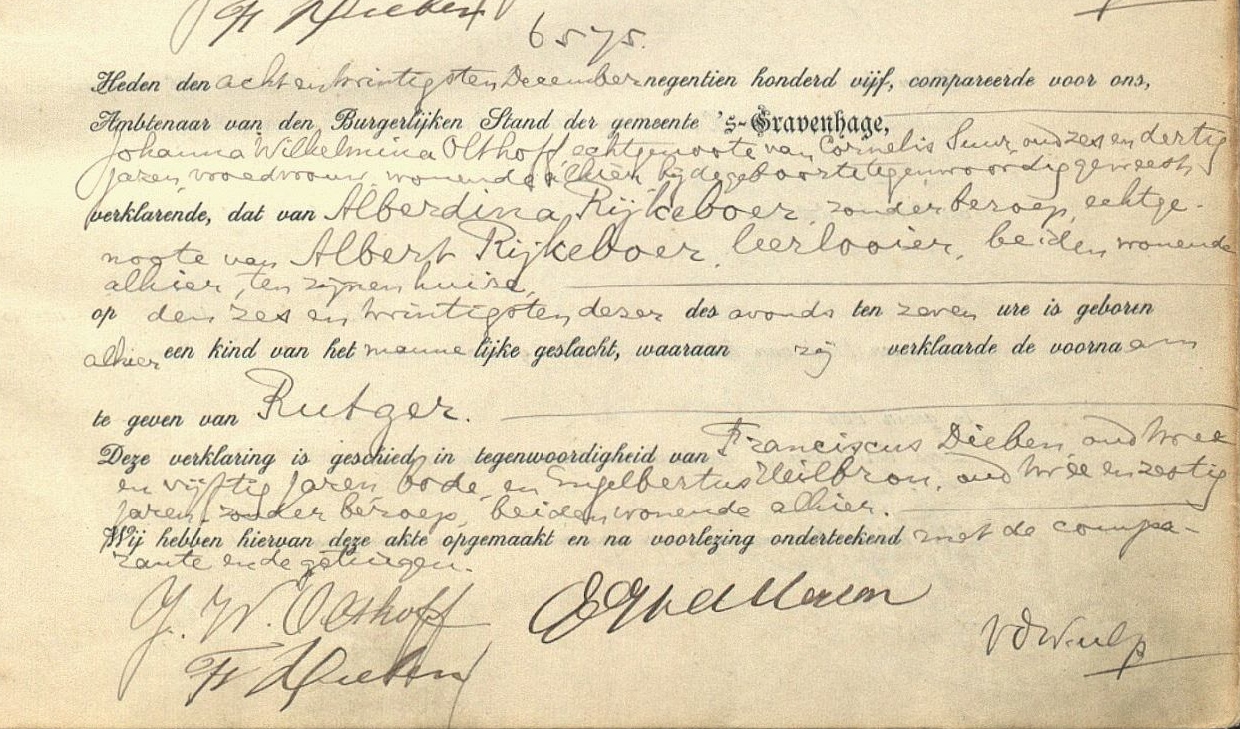 Fr Dieben
6575.
Heden den acht en twintigsten December negentien honderd vijf, compareerde voor ons,
Ambtenaar van den Burgerlijken Stand der gemeente 's-Gravenhage,
Johanna Wilhelmina Olthoff, echtgenoote van Cornelis Suur, oud zes en dertig
jaren, vroedvrouw, wonende alhier, bij de geboorte tegenwoordig geweest,
verklarende, dat van Alberdina Rijkeboer, zonder beroep, echtge-
noote van Albert Rijkeboer, leerlooier, beiden wonende
alhier, ten zijnen huize,
op den zes en twintigsten dezer des avonds ten zeven ure is geboren
alhier een kind van het mannelijke geslacht, waaraan zij verklaarde de voornaam
te geven van Rutger.
Deze verklaring is geschied in tegenwoordigheid van Franciscus Dieben, oud twee
en vijftig jaren, bode, en Engelbertus Heilbron, oud twee en zestig
jaren, zonder beroep, beiden wonende alhier.
Wij hebben hiervan deze akte opgemaakt en na voorlezing onderteekend met de compa-
rante en de getuigen.
J. W. Olthoff
VdWulp
Fr Dieben